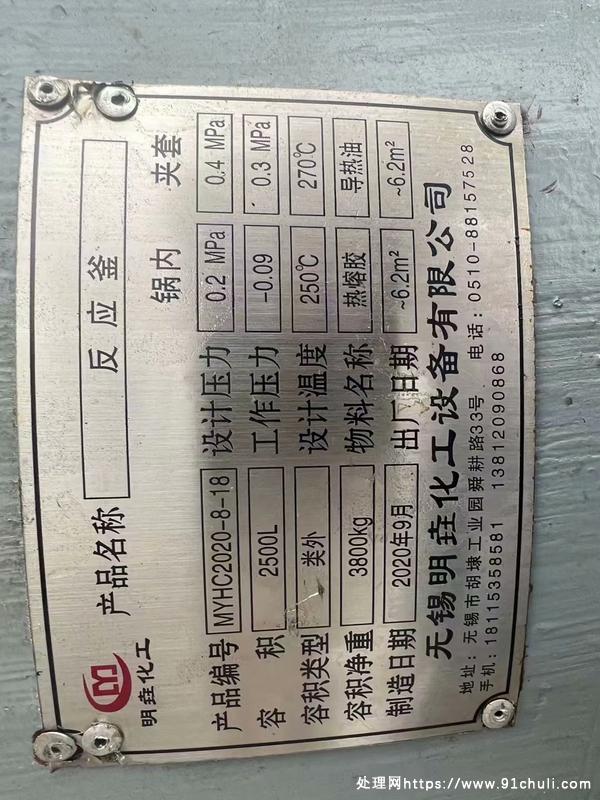 明垚化工
产品名称 反应釜
锅内 夹套
产品编号 MYHC2020-8-18 设计压力 0.2 MPa 0.4 MPa
容积 2500L 工作压力 -0.09 0.3 MPa
容积类型 类外 设计温度 250℃ 270℃
容积净重 3800kg 物料名称 热熔胶 导热油
制造日期 2020年9月 出厂日期 ~6.2m² ~6.2m²
无锡明垚化工设备有限公司
地址: 无锡市胡埭工业园舜耕路33号 电话: 0510-88157528
手机: 18115358581 13812090868
处理网https://www.91chuli.com